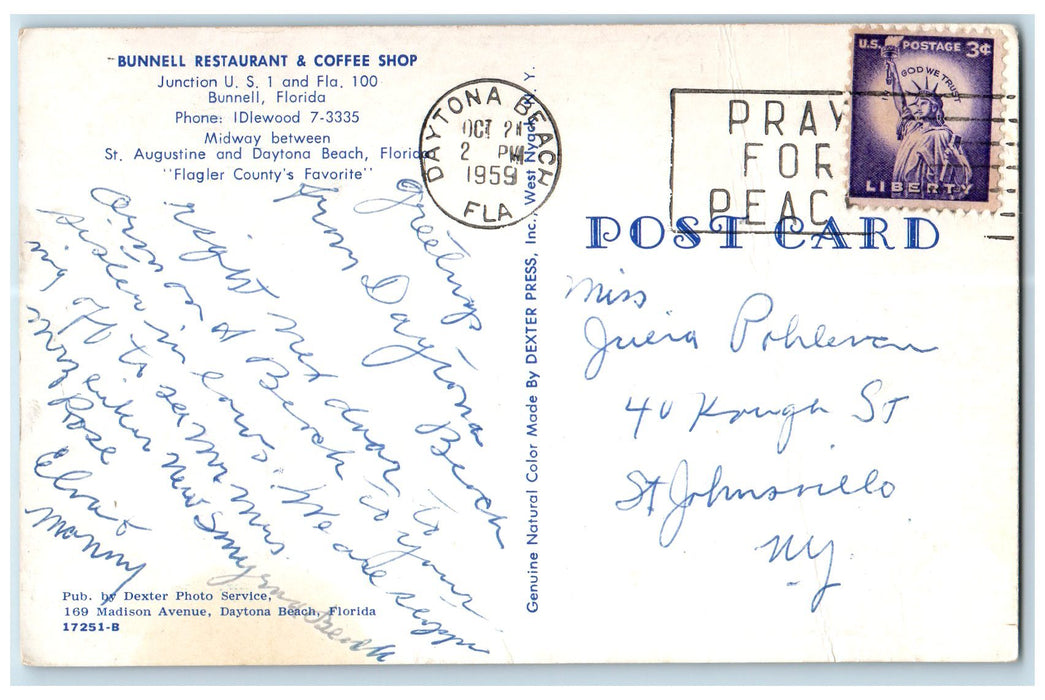 BUNNELL RESTAURANT & COFFEE SHOP
Junction U. S. 1 and Fla. 100
Bunnell, Florida
Phone: IDlewood 7-3335
Midway between
St. Augustine and Daytona Beach, Florida
"Flagler County's Favorite"
Greetings
from Daytona Beach
right next door to your
on a Beach to
Sister in laws. We are stopp
ing off to see Mr Mrs.
New Smyrna Beach
Rose
Elvi &
Manny
Pub. by Dexter Photo Service,
169 Madison Avenue, Daytona Beach, Florida
17251-B
Genuine Natural Color Made By DEXTER PRESS, Inc., West Nyack, N. Y.
DAYTONA BEACH
OCT 21
2 PM
1959
FLA
PRAY
FOR
PEAC
U.S. POSTAGE 3¢
IN GOD WE TRUST
LIBERTY
POST CARD
Miss
Julia
40 Kough St
St Johnsville
NY